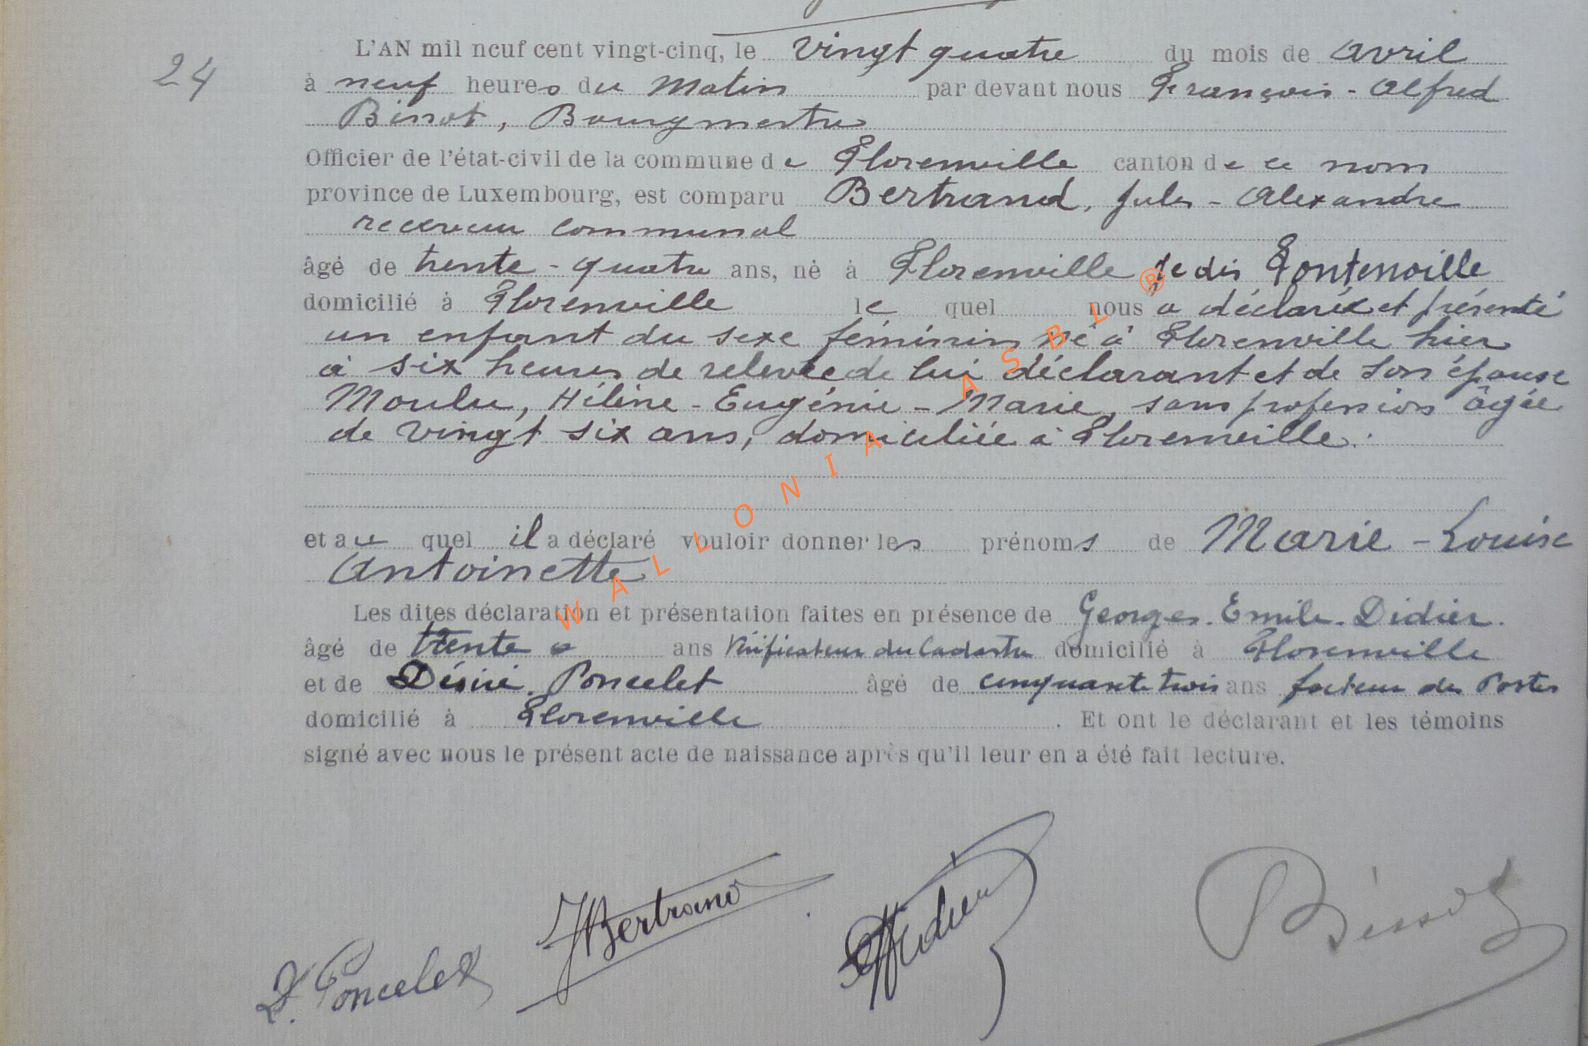 24
L'AN mil neuf cent vingt-cinq, le vingt quatre du mois de avril
à neuf heures du matin par devant nous François - Alfred
Bissot, Bourgmestre
Officier de l'état-civil de la commune de Florenville canton de ce nom
province de Luxembourg, est comparu Bertrand, Jules - Alexandre
receveur communal
âgé de trente - quatre ans, né à Florenville
domicilié à Florenville le quel nous a déclaré et présenté
un enfant du sexe féminin né à Florenville hier
à six heures de relevée de lui déclarant et de son épouse
Moulu, Hélène - Eugénie - Marie, sans profession âgée
de vingt six ans, domiciliée à Florenville.
et au quel il a déclaré vouloir donner les prénoms de Marie - Louise
Antoinette
Les dites déclaration et présentation faites en présence de Georges - Emile - Didier.
âgé de trente ans Vérificateur du Cadastre domicilié à Florenville
et de Désiré Poncelet âgé de cinquante trois ans facteur des Postes
domicilié à Florenville . Et ont le déclarant et les témoins
signé avec nous le présent acte de naissance après qu'il leur en a été fait lecture.
D. Poncelet
JBertrand
Didier
Bissot
WALLONIA ASBL ®